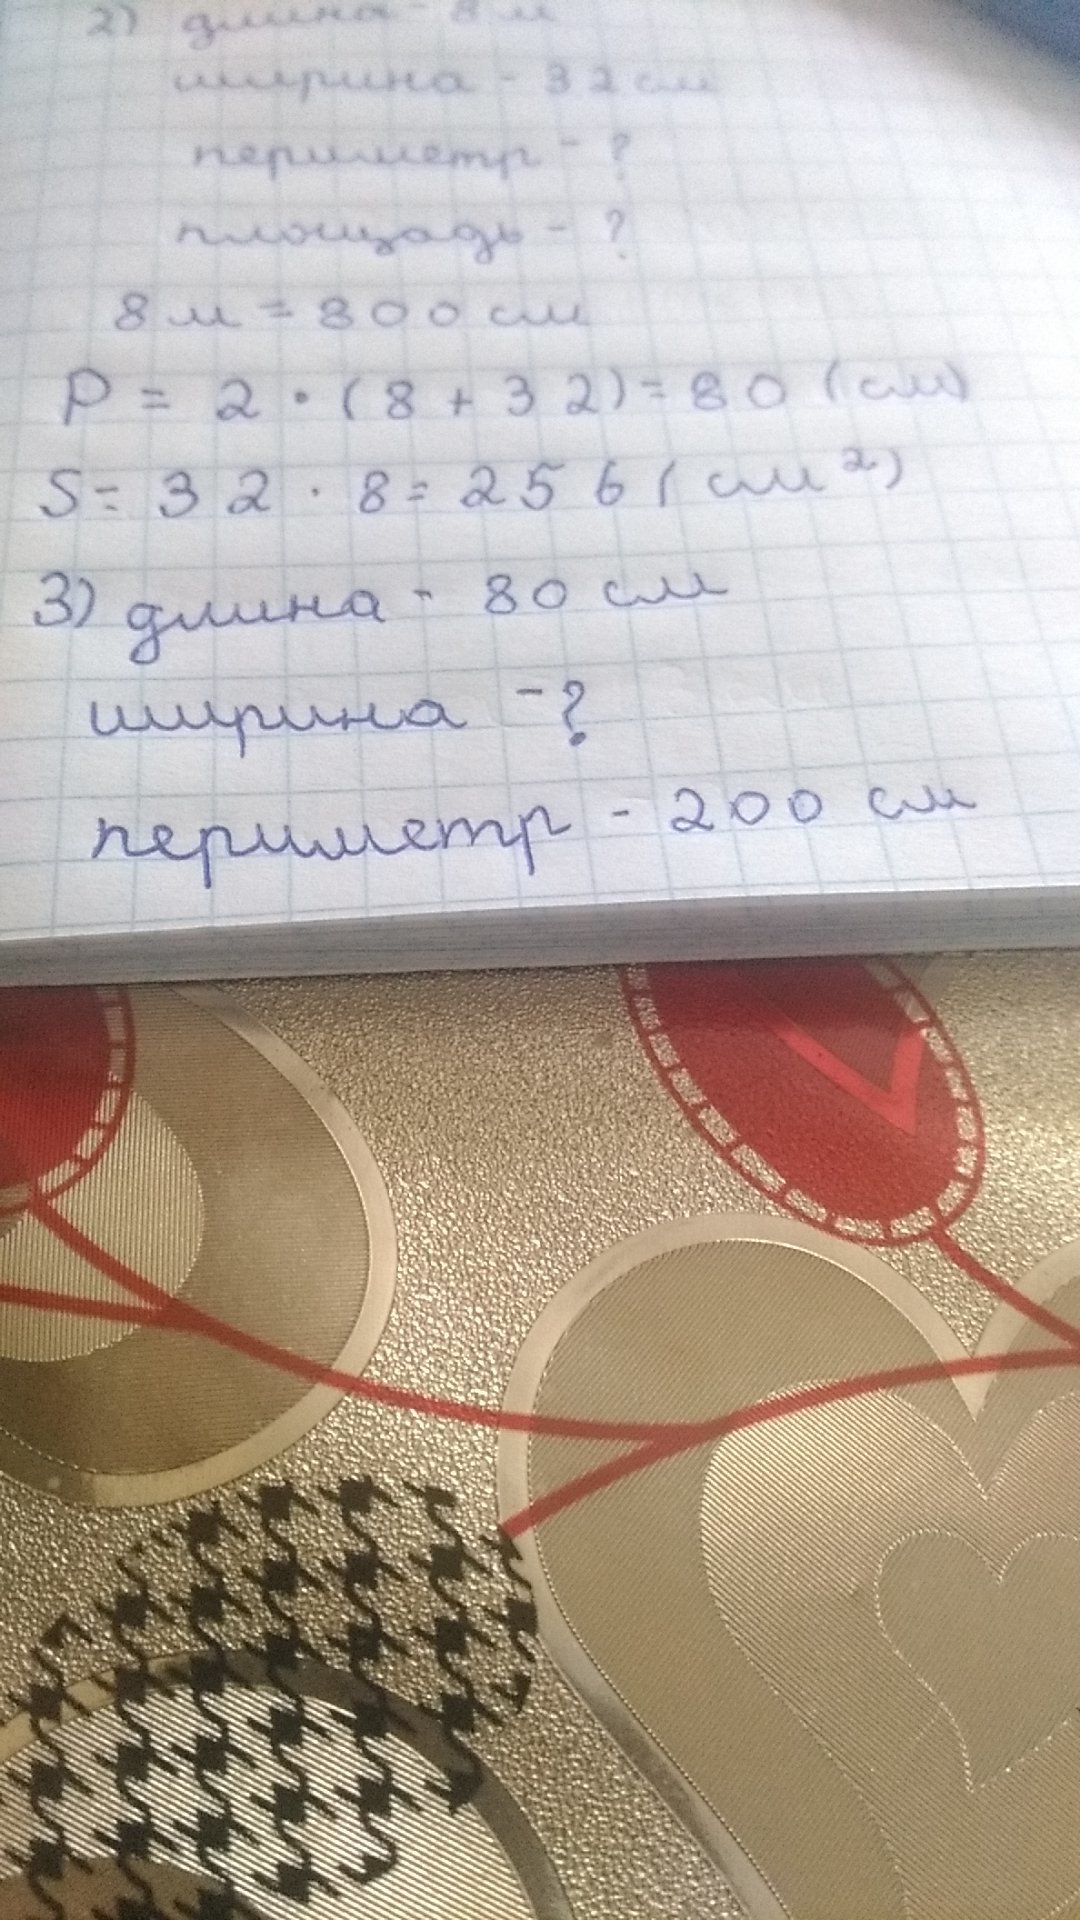 2) длина - 8 м
ширина - 32 см
периметр - ?
площадь - ?
8 м = 800 см
P = 2 · (8 + 32) = 80 (см)
S = 32 · 8 = 256 (см²)
3) длина - 80 см
ширина - ?
периметр - 200 см